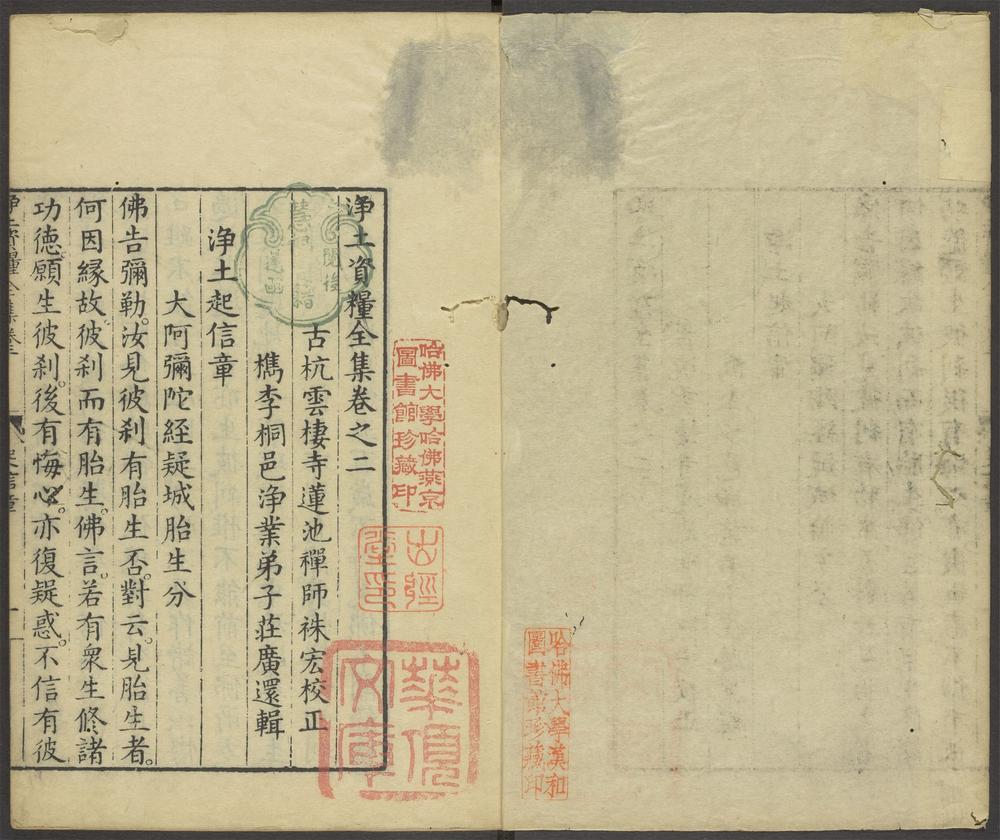 淨土資糧全集卷之二
古杭雲棲寺蓮池禪師袾宏校正
檇李桐邑淨業弟子莊廣還輯
淨土起信章
大阿彌陀経疑城胎生分
佛告彌勒。汝見彼刹有胎生否。對云。見胎生者。
何因緣故。彼刹而有胎生。佛言。若有衆生修諸
功德。願生彼刹。後有悔心。亦復疑惑。不信有彼
哈佛大學哈佛燕京
圖書館珍藏印
哈佛大學漢和
圖書館珍藏印
文庫